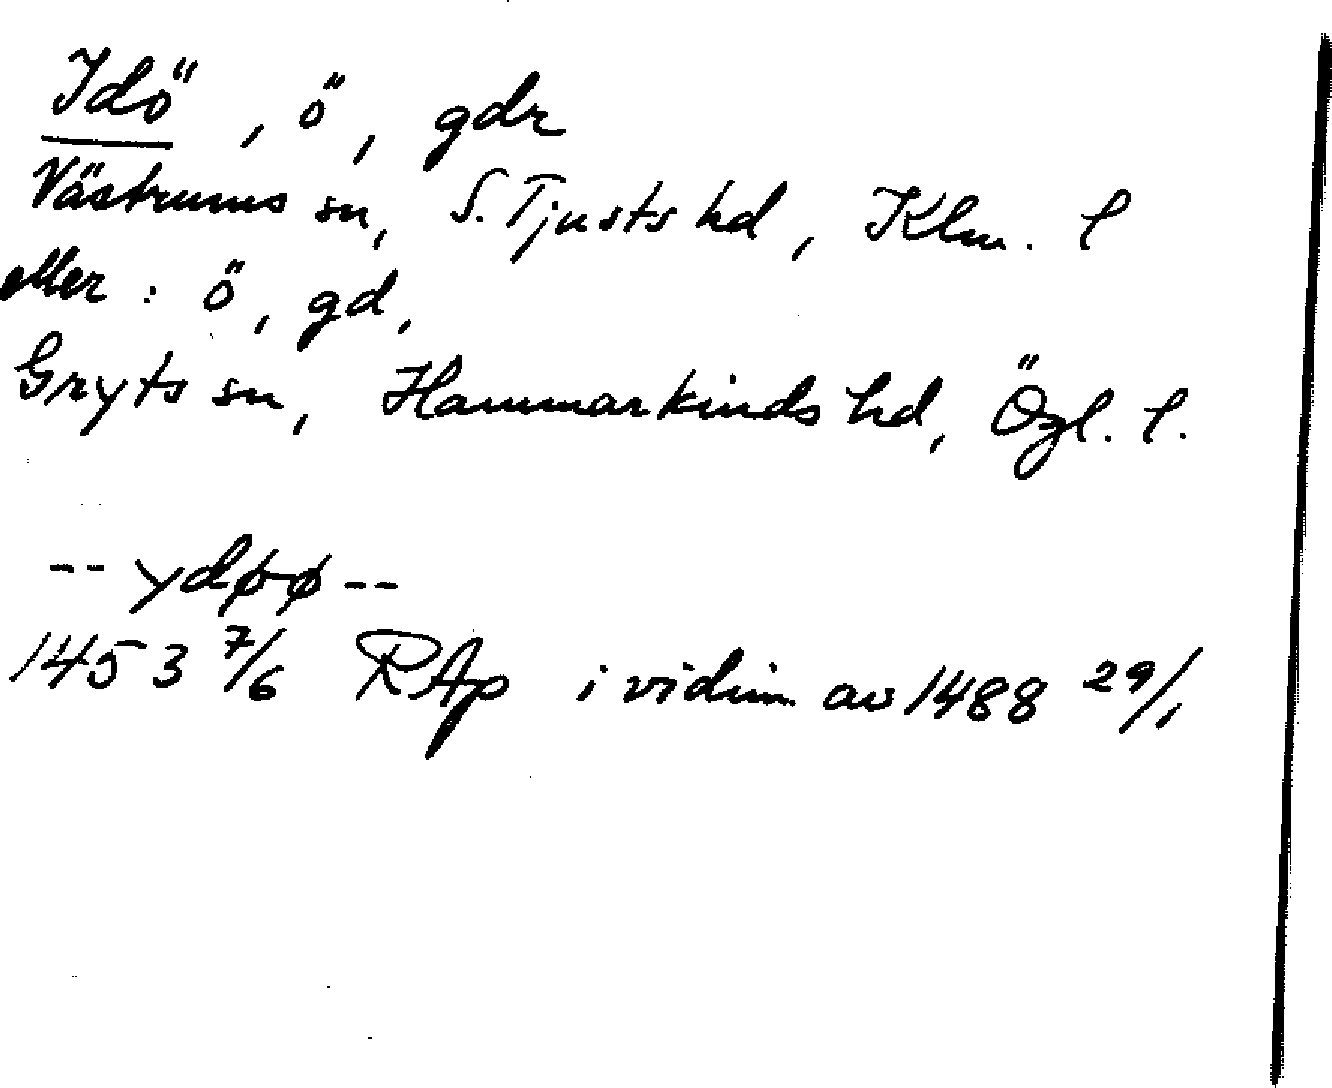 Idö, ö, gdr
Västrums sn, S. Tjusts hd, Klm. l
eller: ö, gd,
Gryts sn, Hammarkinds hd, Ögl. l.
-- ydøø --
1453 7/6 RAp i vidim. av 1488 29/1